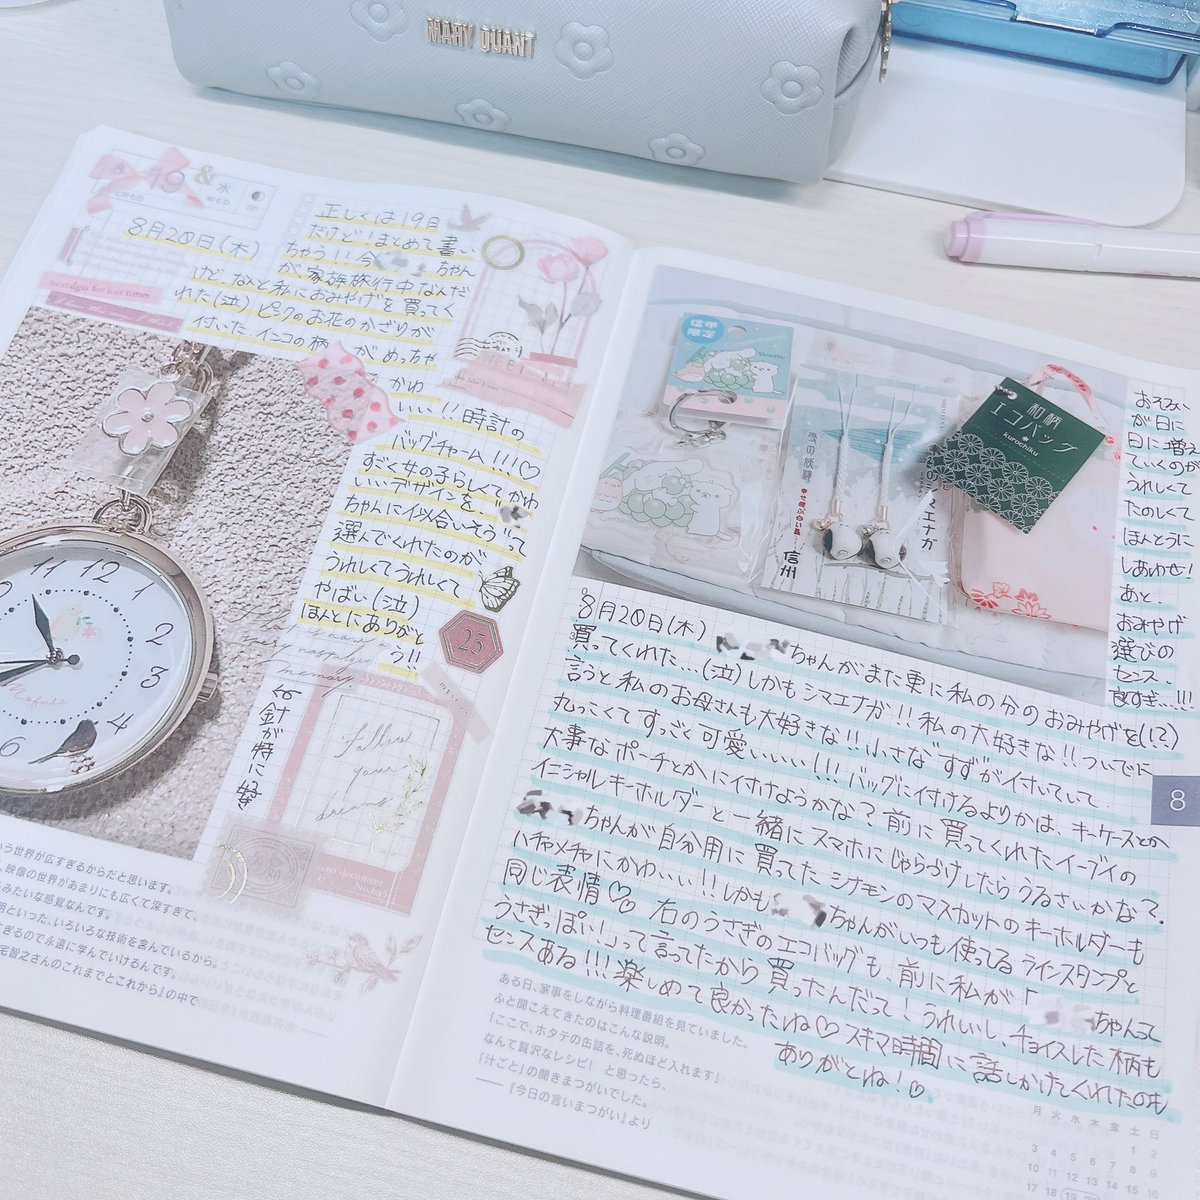 MARY QUANT
8
19
&
水
WED
8月20日(木)
正しくは19日
だけど!まとめて書い
ちゃう!!今
ちゃん
が、家族旅行中なんだ
けど、なんと私におみやげを買ってく
れた(泣)ピンクのお花のかざりが
付いた、インコの柄
がめっちゃ
かわ
いい!!時計の
バッグチャーム!!!♡
すごく女の子らしくてかわ
いいデザインを、
ちゃんに似合いそう"って
選んでくれたのが
うれしくてうれしくて
やばい(泣)
ほんとにありがと
う!!
nostalgia for lost times
25
針が特に好
follow
your
dreams
12
1
2
3
4
6
11
Mofuli
う世界が広すぎるからだと思います。
、映像の世界があまりにも広くて深すぎて、
るみたいな感覚なんです。
明といった、いろいろな技術を含んでいるから。
ぎるので永遠に学んでいけるんです。
宅智之さんのこれまでとこれから』の中で
信州
限定
Cinnamoroll
雪の妖精
シマエナガ
信州
和柄
エコバッグ
kurochiku
おそろい
が日に
日に増え
ていくのが
うれしくて
たのしくて
ほんとうに
しあわせ!
あと、
おみやげ
選びの
センス、
良すぎ…!!!
8月20日(木)
ちゃんがまた更に私の分のおみやげを(!?)
買ってくれた…(泣)しかもシマエナガ!!私の大好きな!!ついでに
言うと私のお母さんも大好きな!!小さな"すず"が付いていて
丸っこくてすっごく可愛いいい!!!バッグに付けるよりかは、キーケースとか
大事なポーチとかに付けようかな?前に買ってくれたイーブイの
イニシャルキーホルダーと一緒にスマホにじゃらづけしたらうるさいかな?
ちゃんが自分用に買ってた、シナモンのマスカットのキーホルダーも
ハチャメチャにかわいい!!しかも
ちゃんがいつも使ってるラインスタンプと
同じ表情♡♡ 右のうさぎのエコバッグも、前に私が「
ちゃんって
うさぎっぽい!」って言ってたから買ったんだって!うれしいし、チョイスした柄も
センスある!!!楽しめて良かったね♡スキマ時間に話しかけてくれたのも
ありがとね!♡
8
ある日、家事をしながら料理番組を見ていました。
ふと聞こえてきたのはこんな説明。
「ここで、ホタテの缶詰を、死ぬほど入れます」
なんて贅沢なレシピ! と思ったら、
「汁ごと」の聞きまつがいでした。
——『今日の言いまつがい』より
月 火 水 木 金 土 日
1 2
3 4 5 6 7 8 9
10 11 12 13 14 15 16
17 18 19